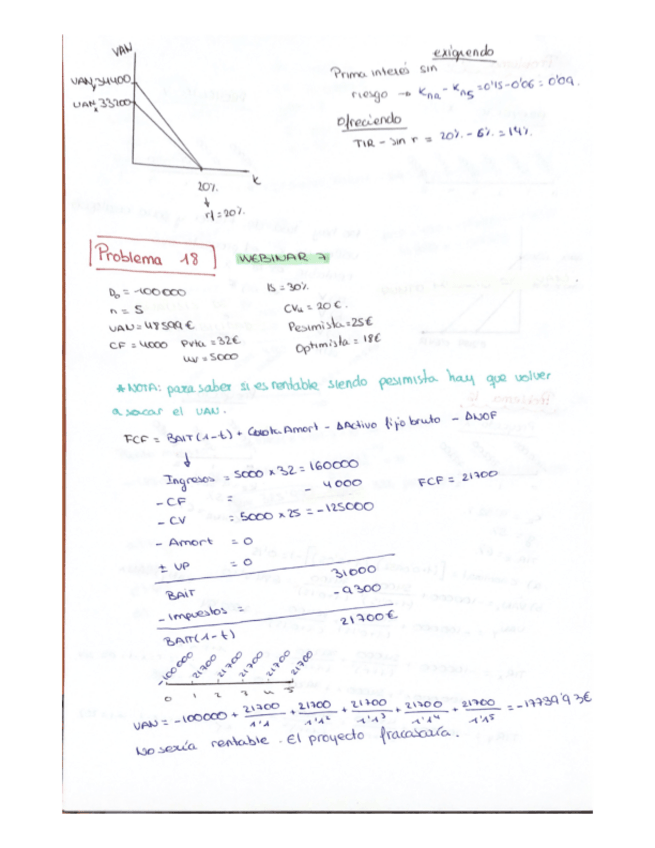 VAN
VAN, 34400
VAN, 33200
20%
k
rf = 20%
exigiendo
Prima interés sin
riesgo → Kna - Kns = 0'15 - 0'06 = 0'09.
Ofreciendo
TIR - sin r = 20% - 6% = 14%.
Problema 18
WEBINAR 7
D₀ = -100000
n = 5
VAN = 48599€
CF = 4000 Pvta = 32€
uv = 5000
IS = 30%
CVu = 20€.
Pesimista = 25€
Optimista = 18€
* NOTA: para saber si es rentable siendo pesimista hay que volver
a sacar el VAN.
FCF = BAIT(1-t) + Cuota Amort - ΔActivo fijo bruto - ΔNOF
↓
Ingresos = 5000 x 32 = 160000
- CF = - 4000
FCF = 21700
- CV = 5000 x 25 = -125000
- Amort = 0
± VP = 0
BAIT 31000
- Impuestos = - 9300
BAIT(1-t) 21700€
-100000 21700 21700 21700 21700 21700
0 1 2 3 4 5
VAN = -100000 + 21700/1'1 + 21700/1'1² + 21700/1'1³ + 21700/1'1⁴ + 21700/1'1⁵ = -17739'93€
No sería rentable. El proyecto fracasaría.